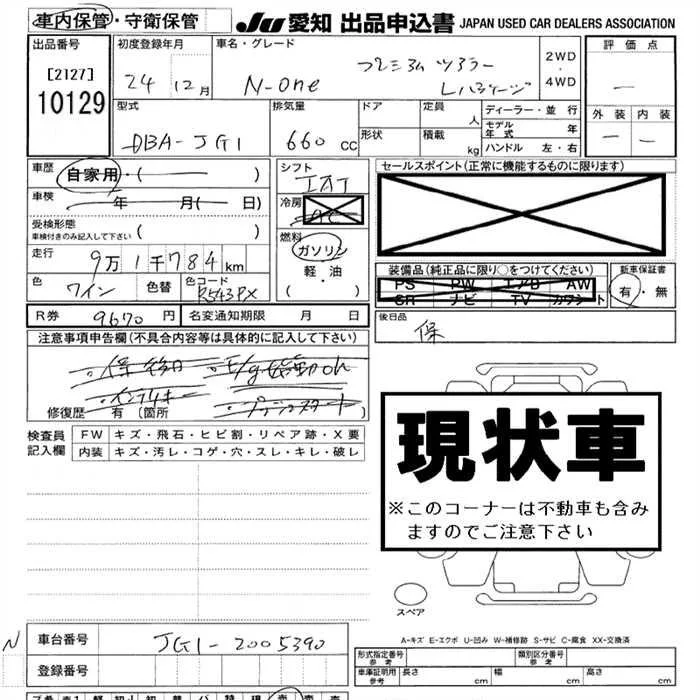 車内保管・守衛保管
JU 愛知 出品申込書 JAPAN USED CAR DEALERS ASSOCIATION
出品番号 初度登録年月 車名・グレード 評価点
[2127] 24 12月 N-one プレミアム ツアラー Lパッケージ 2WD・4WD —
10129
型式 排気量 ドア 定員 人 ディーラー・並行 外装 内装
DBA-JG1 660 cc 形状 積載 kg モデル年式 年 — —
ハンドル 左・右
車歴 自家用・( ) シフト セールスポイント(正常に機能するものに限ります)
IAT
車検 年 月( 日) 冷房 AC
受検形態
車検付きのみ記入して下さい ( ) 燃料
走行 9万1千784km ガソリン 装備品(純正品に限り○をつけてください) 新車保証書
軽・油 PS PW エアB AW 有・無
色 ワイン 色替 色コード R543PX ( ) SR ナビ TV カワシート
R券 9670円 名変通知期限 月 日 後日品
注意事項申告欄(不具合内容等は具体的に記入して下さい) 保
修復歴 有 (箇所
検査員 FW キズ・飛石・ヒビ割・リペア跡・X要
記入欄 内装 キズ・汚レ・コゲ・穴・スレ・キレ・破レ
現状車
※このコーナーは不動車も含み
ますのでご注意下さい
スペア
A-キズ E-エクボ U-凹み W-補修跡 S-サビ C-腐食 XX-交換済
N 車台番号 JG1-2005390
登録番号
形式指定番号 参考 類別区分番号 参考
車庫証明用 参考 長さ cm 幅 cm 高さ cm